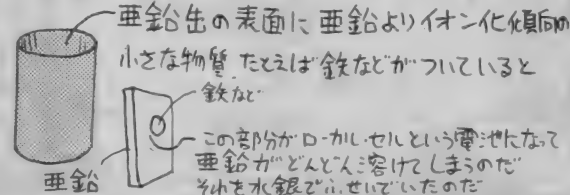 亜鉛缶の表面に亜鉛よりイオン化傾向の
小さな物質、たとえば鉄などがついていると
鉄など
この部分がローカル・セルという電池になって
亜鉛がどんどん溶けてしまうのだ
それを水銀でふせいでいたのだ
亜鉛